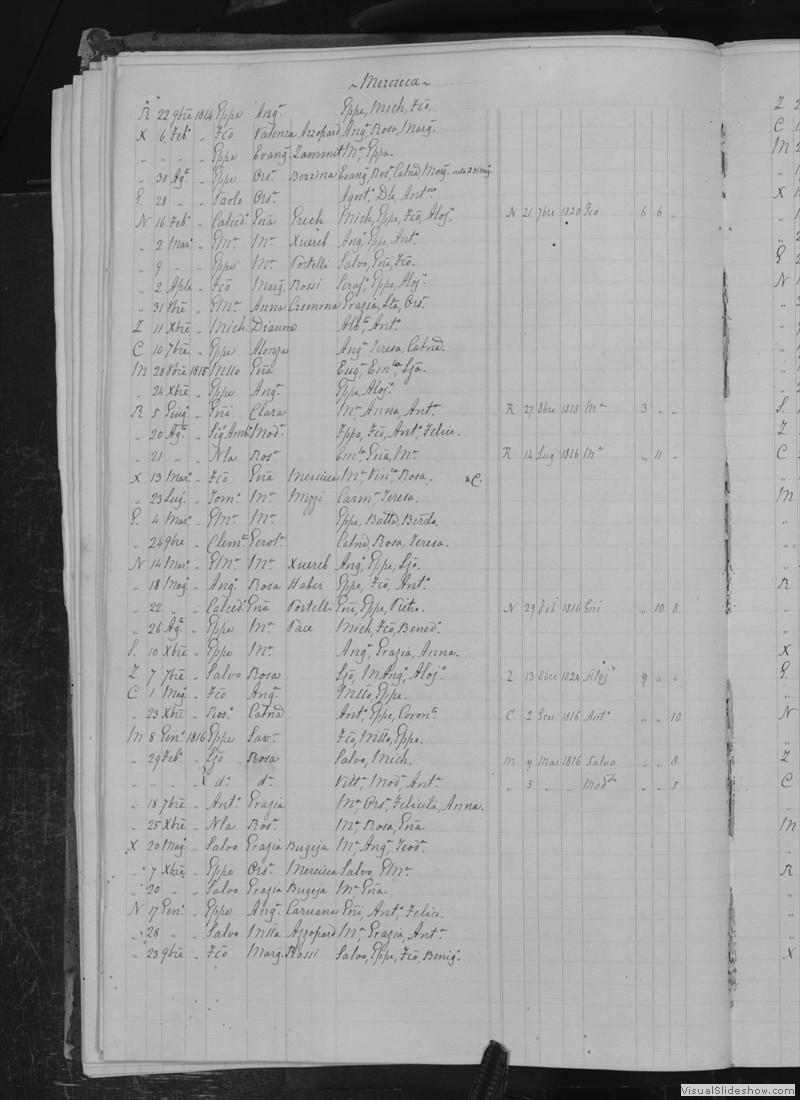 ~Mercieca~
R 22 9bre 1814 Gppe Ang.ª Gppe, Mich, Fcõ.
X 6 Feb.º „ Fcõ Valenza Azzopard Ang.º Rosa, Marg.
„ „ „ „ Gppe Evang. Zammit M.ª Gppa.
„ 30 Ag.º „ Gppe Ors.ª Berzina Evang. Ros.ª Catnã, Marg.
G. 28 „ „ Paolo Ors.ª Agost.º Dla, Ant.
N 16 Feb.º „ Calced.º Gña Grech Mich, Gppe, Fcõ, Aloj.º N 21 7bre 1820 Fco 6 6 „
„ 2 Mar.º „ GM.ª M.ª Xuereb Ang.º Gppe, Ant.º
„ 9 „ „ Gppe M.ª Portelli Salvo, Gni, Fcõ.
„ 2 Aple „ Fcõ Marg. Rossi Seraf.º Gppe, Aloj.º
„ 31 8bre „ GM.ª Anna Cremona Grazia, Lta, Ors.ª
Z 11 Xbre „ Mich. Dianora Alb.ª Ant.º
C 10 7bre „ Gppe Alonza Ang.ª Teresa, Catnã.
M 28 8bre 1815 Nllo Gña Eug.º Em.la, Ljõ.
„ 24 Xbre „ Gppe Ang.ª Gppe, Aloj.º
R 5 Giug.º „ Gni Clara M.ª Anna, Ant.ª R 27 8bre 1818 M.ª 3 „ „
„ 20 Ag.º „ Sig. Amb.º Mod.ª Fppo, Fcõ, Ant.º Felice.
„ 21 „ „ Nla Ros.ª Em.la Gña, M.ª R 14 Lug 1816 M.ª „ 11 „
X 13 Mar.º „ Fcõ Gña Mercieca M.ª Vin.la Rosa. C.
„ 23 Lug. „ Tom.º M.ª Mizzi Carm.ª Teresa.
G. 4 Mar.º „ GM.ª M.ª Gppe, Batta, Berdo.
„ 24 9bre „ Clem.te Gerol.ª Catnã, Rosa, Teresa.
N 14 Mar.º „ GM.ª M.ª Xuereb Ang.º Gppe, Ljõ.
„ 18 Mag. „ Ang.º Rosa Haber Gppe, Fcõ, Ant.º
„ 22 „ „ Calced.º Gña Portelli Gni, Gppe, Pietro. N 29 Feb 1816 Gni „ 10 8
„ 26 Ag.º „ Gppe M.ª Pace Mich, Fcõ, Bened.º
S. 10 Xbre „ Gppe M.ª Ang.º Grazia, Anna.
Z 7 7bre „ Salvo Rosa Ljõ, MAng.º Aloj.º Z 13 8bre 1824 Aloj.º 9 „ „
C 1 Mag. „ Fcõ Ang.ª Nllo, Gppe.
„ 23 Xbre „ Ros.º Catnã Ant.º Gppe, Coron.ta C 2 Gen 1816 Ant.º „ „ 10
M 8 Gen.º 1816 Gppe Sav.ª Fcõ, Nllo, Gppe.
„ 29 Feb.º „ Ljõ Rosa Salvo, Mich. M 9 Mar 1816 Salvo „ „ 8
„ „ „ „ d.º d.ª Vitt.ª Mod.ª Ant.ª „ 5 „ „ Mod.ta „ „ 5
„ 18 7bre „ Ant.º Grazia M.ª Ors.ª Felicita, Anna.
„ 25 Xbre „ Nla Ros.ª M.ª Rosa, Gña.
X 20 Mag. „ Salvo Grazia Bugeja M.ª Ang.º Teod.ª
„ 7 Xbre „ Gppe Ors.ª Mercieca Salvo, GM.ª
„ 20 „ „ Salvo Grazia Bugeja M.ª Gña.
N 17 Gen.º „ Gppe Ang.ª Caruana Gni, Ant.º Felice.
„ 28 „ „ Salvo Nlla Azzopard M.ª Grazia, Ant.ª
„ 23 9bre „ Fcõ Marg. Rossi Salvo, Gppe, Fcõ, Benig.º
VisualSlideshow.com